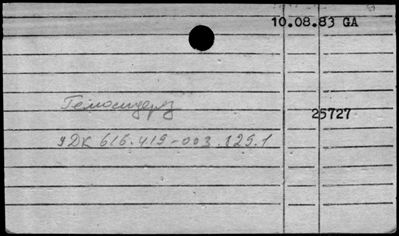 10.08.83 GA
Гемосидероз
25727
УДК 616.419-003.829.1